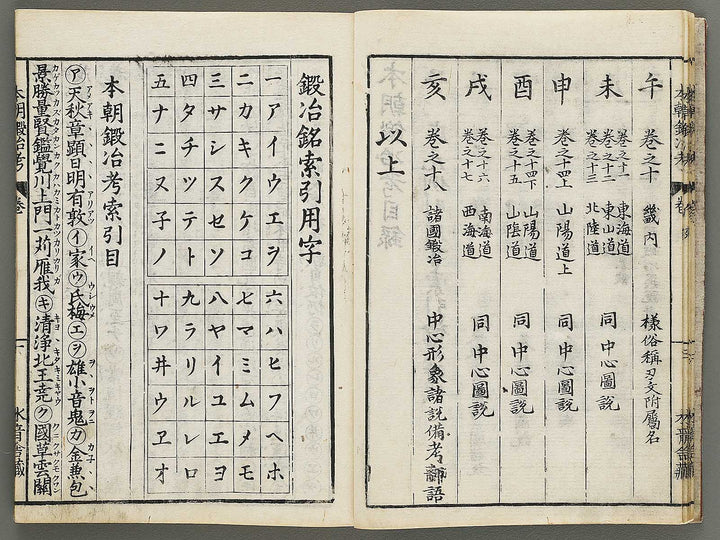 午 巻之十 畿内 様俗称刃文附屬名
未 巻之十一 東海道 巻之十二 東山道 巻之十三 北陸道 同 中心圖説
申 巻之十四上 山陽道上 同 中心圖説
酉 巻之十四下 山陽道 巻之十五 山陰道 同 中心圖説
戌 巻之十六 南海道 巻之十七 西海道 同 中心圖説
亥 巻之十八 諸國鍛冶 中心形象諸説備考 語
以上
鍛冶銘索引用字
一 アイウエヲ 六 ハヒフヘホ
二 カキクケコ 七 マミムメモ
三 サシスセソ 八 ヤイユエヨ
四 タチツテト 九 ラリルレロ
五 ナニヌ子ノ 十 ワ井ウヱオ
本朝鍛冶考索引目
㋐天秋章顕日明有敦㋑家㋒氏梅㋓㋾雄小音鬼㋕金兼包
景勝量賢鑑覺川上門一苅雁我㋖清浄北王㋗國草雲關
本朝鍛冶考 巻 一 水音舎蔵